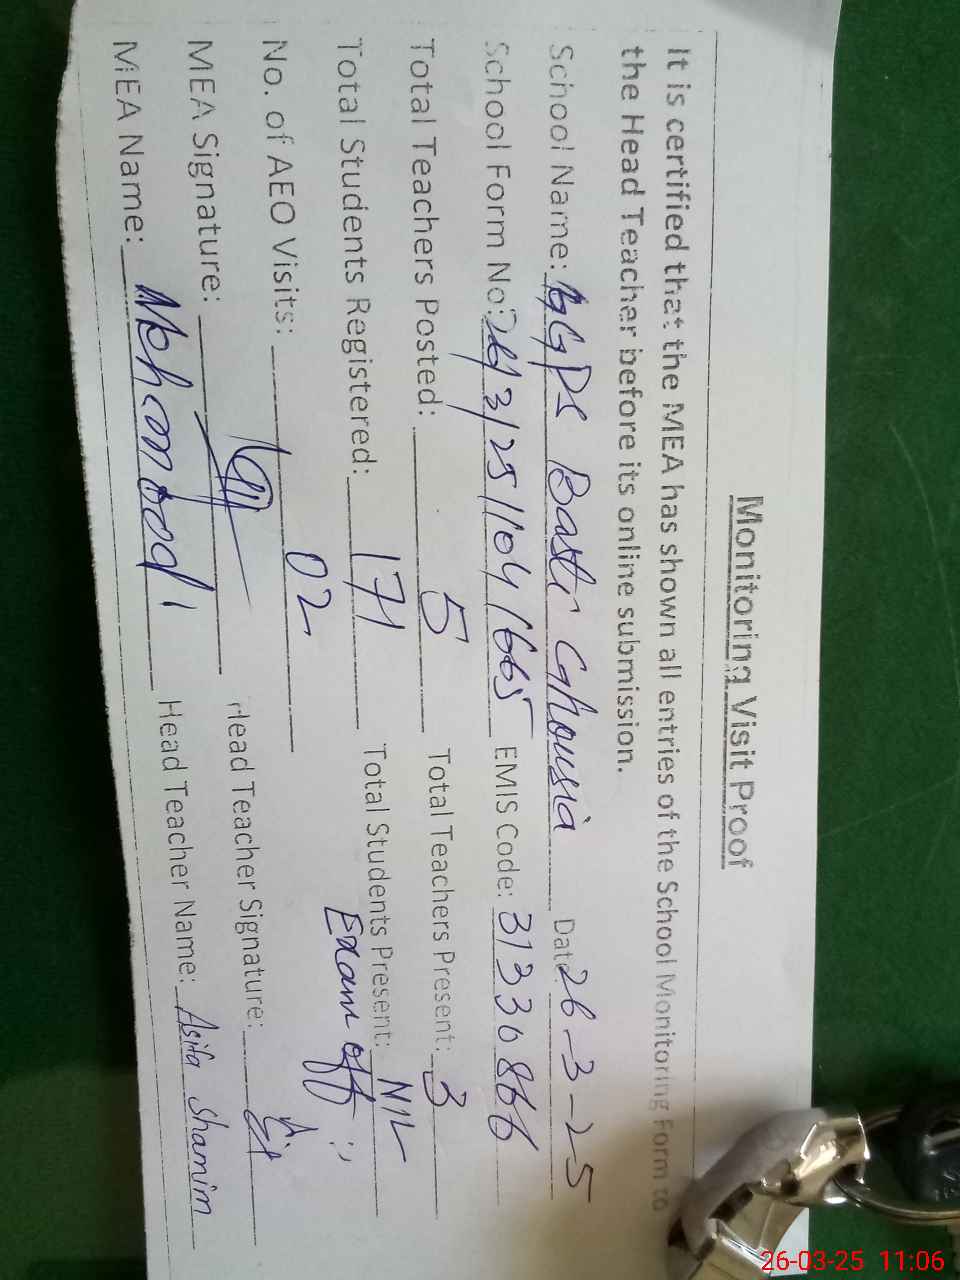 Monitoring Visit Proof
It is certified that the MEA has shown all entries of the School Monitoring Form to
the Head Teacher before its online submission.
School Name: GGPS Basti Ghousia Date: 26-3-25
School Form No: 26/3/25/1104/1665 EMIS Code: 31330866
Total Teachers Posted: 5 Total Teachers Present: 3
Total Students Registered: 171 Total Students Present: NIL
Exam off
No. of AEO Visits: 02
MEA Signature: Head Teacher Signature:
MEA Name: Mehmood Head Teacher Name: Asifa Shamim
26-03-25 11:06